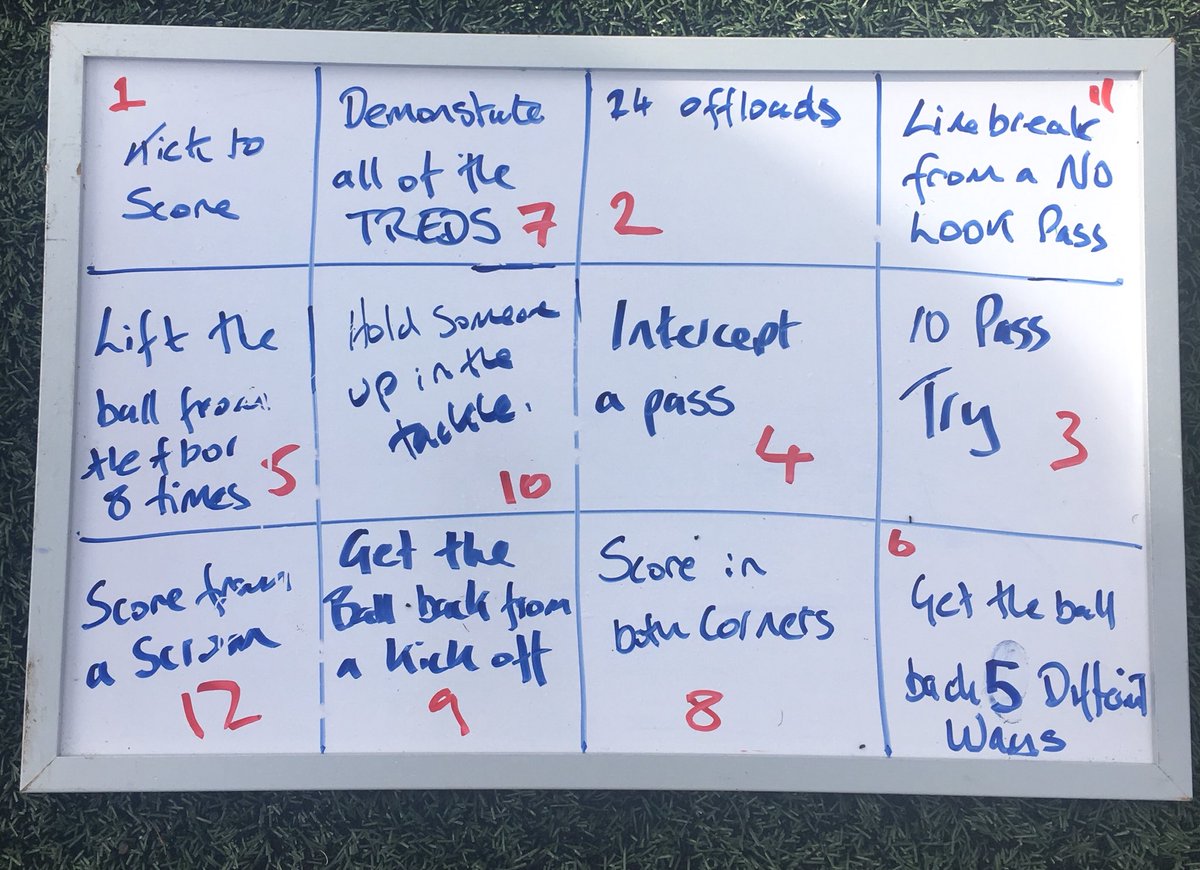 1
Kick to
Score
Demonstrate
all of the
TREDS 7
24 offloads
2
Linebreak 11
from a NO
Look Pass
Lift the
ball from
the floor
8 times 5
Hold Someone
up in the
tackle.
10
Intercept
a pass
4
10 Pass
Try
3
Score from
a Scrum
12
Get the
Ball back from
a kick off
9
Score in
both Corners
8
6
Get the ball
back 5 Different
Ways